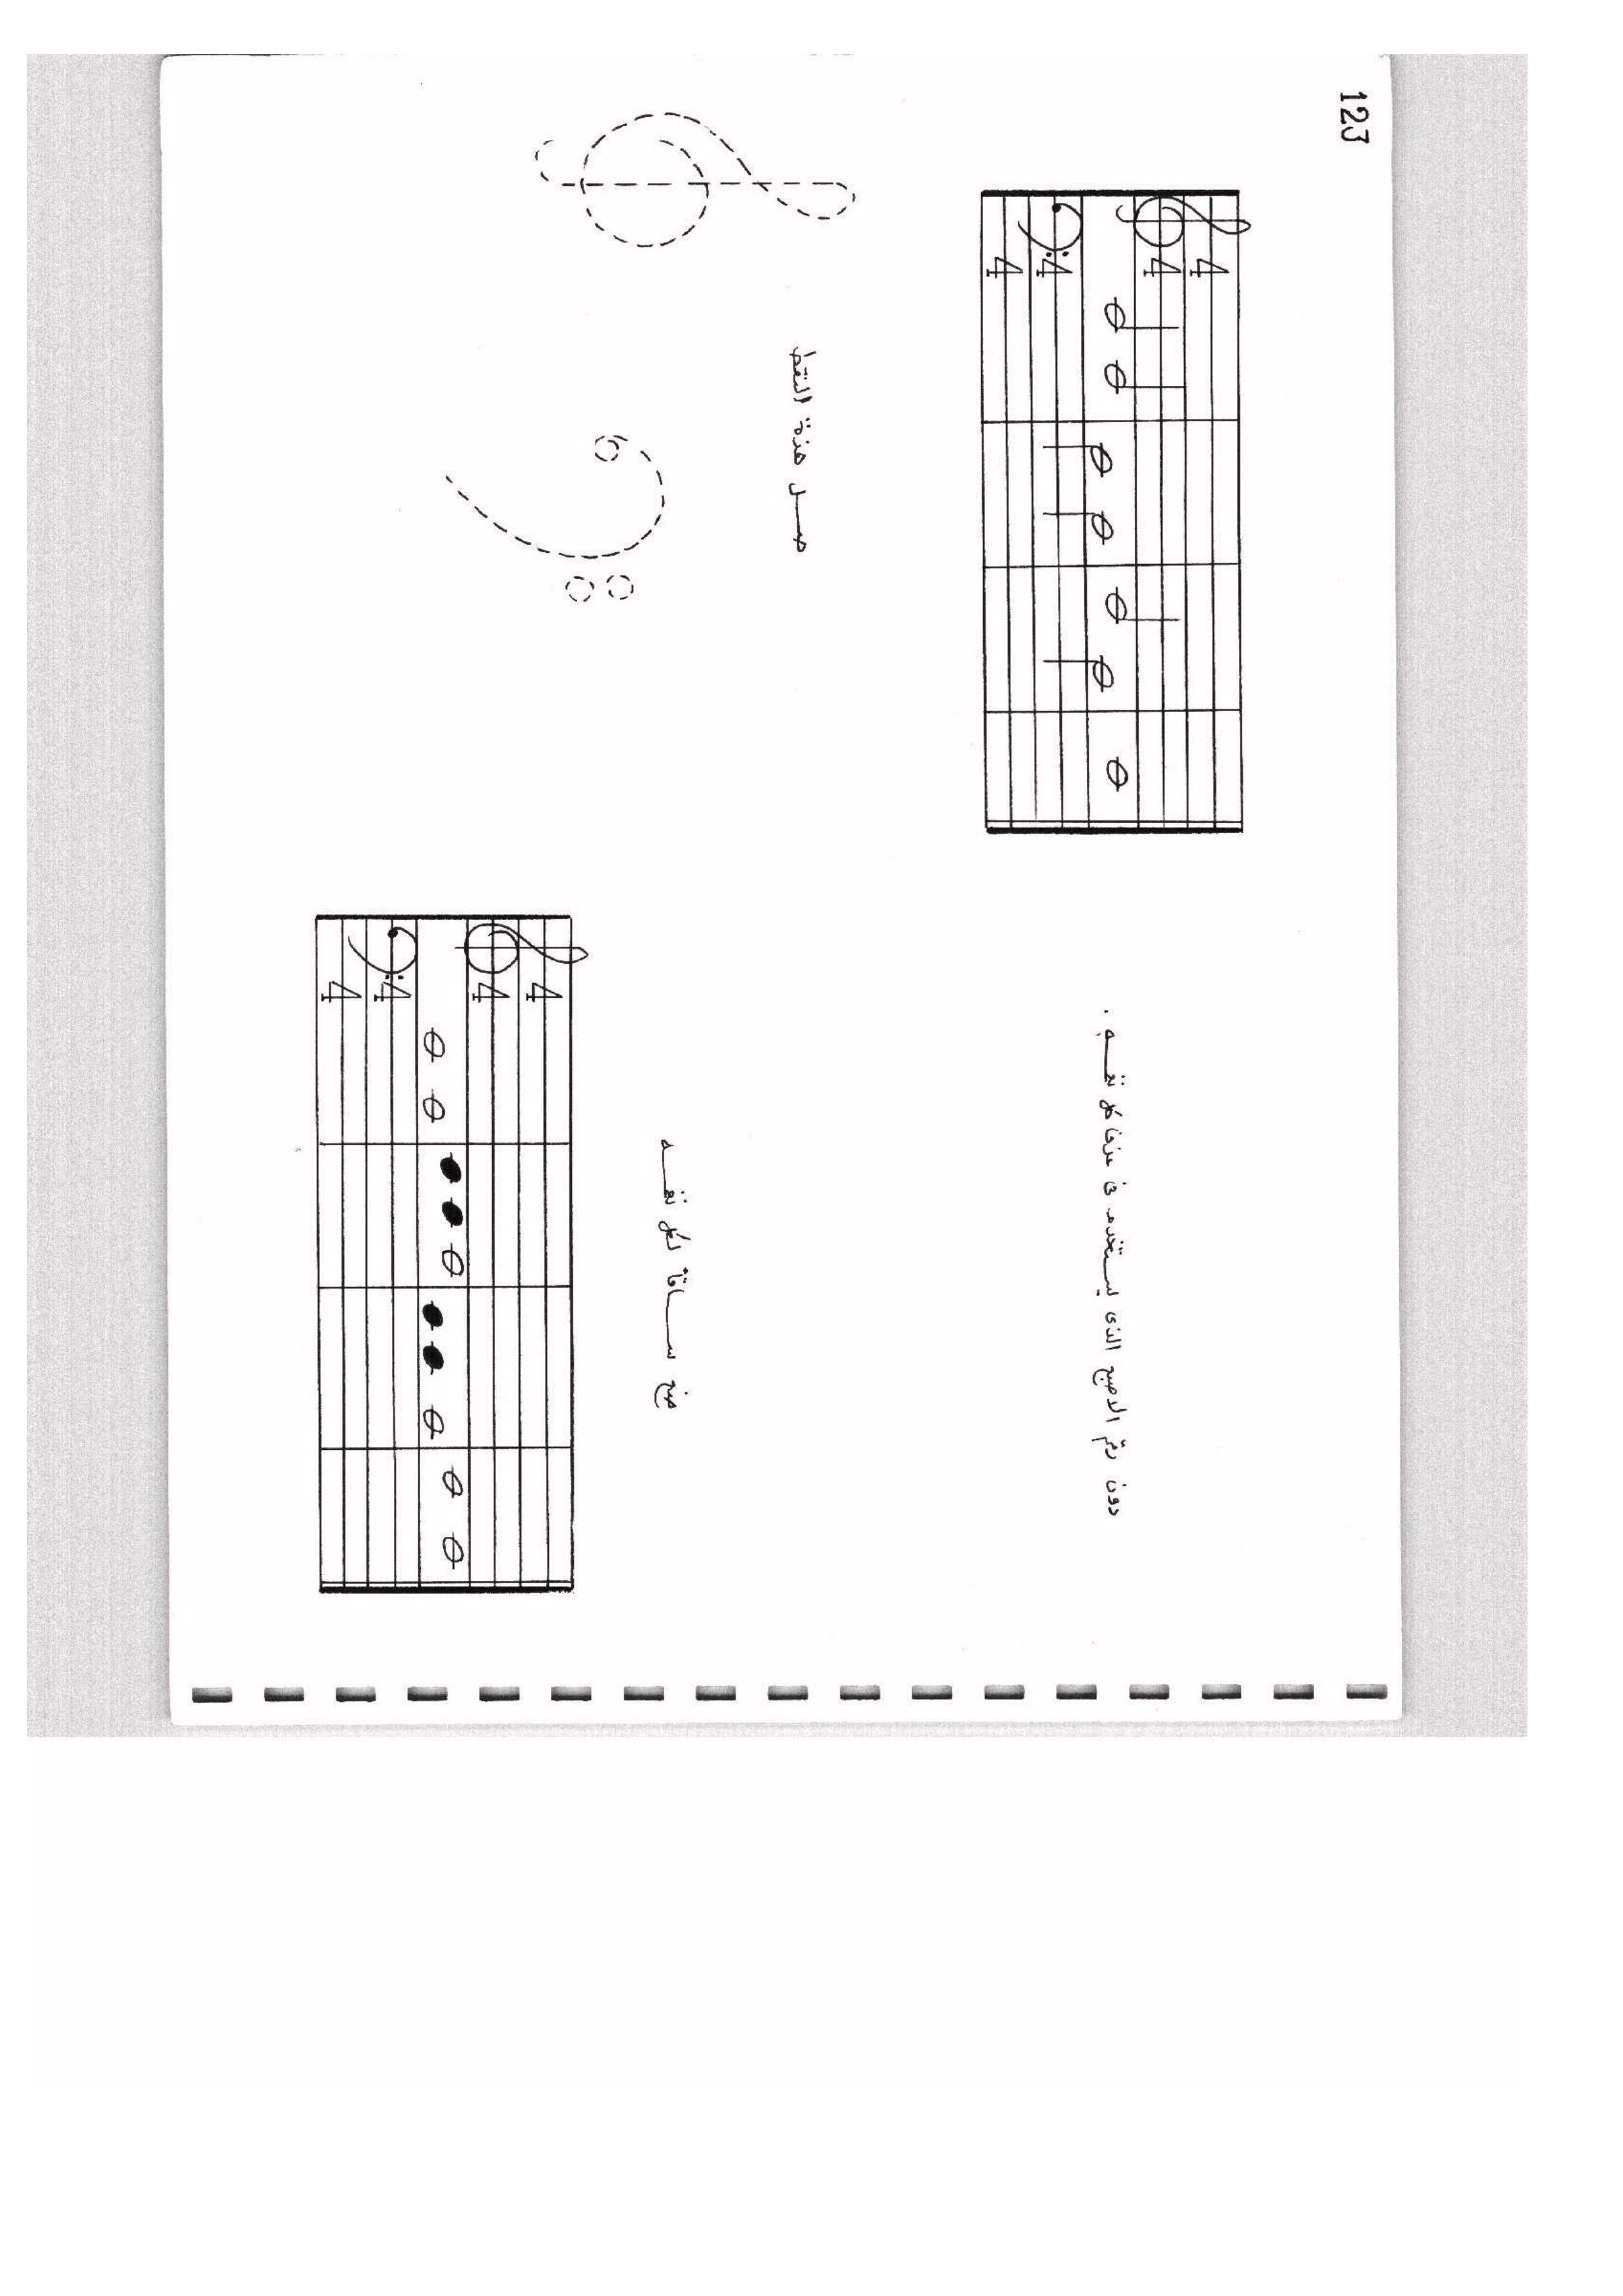 123
4 4
4 4
دون رقم الاصبع الذى يستخدم فى عزف كل نغمه .
صل هذة النقط
ضع ساقاً لكل نغمه
4 4
4 4